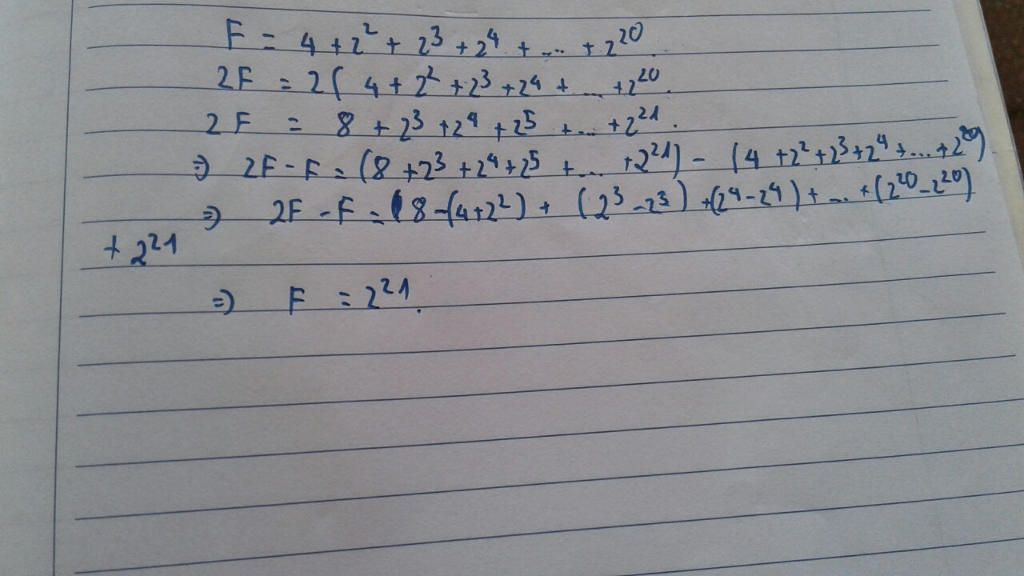 F = 4 + 2² + 2³ + 2⁴ + ... + 2²⁰.
2F = 2( 4 + 2² + 2³ + 2⁴ + ... + 2²⁰.
2F = 8 + 2³ + 2⁴ + 2⁵ + ... + 2²¹.
=) 2F - F = (8 + 2³ + 2⁴ + 2⁵ + ... + 2²¹) - (4 + 2² + 2³ + 2⁴ + ... + 2²⁰)
=) 2F - F = (8 - (4 + 2²) + (2³ - 2³) + (2⁴ - 2⁴) + ... + (2²⁰ - 2²⁰)
+ 2²¹
=) F = 2²¹.